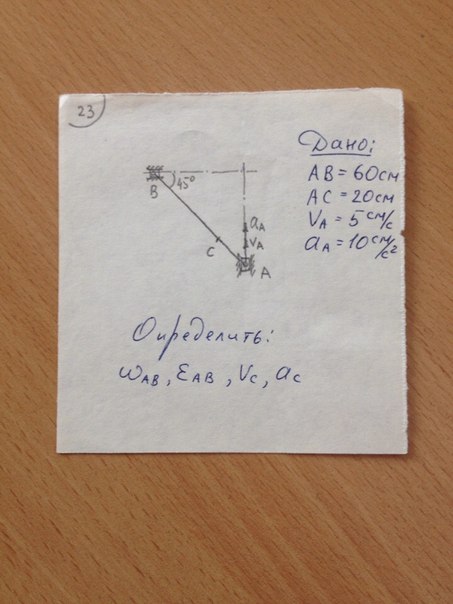 23
Дано:
AB = 60 см
AC = 20 см
VA = 5 см/с
aA = 10 см/с²
45°
B
aA
VA
C
A
Определить:
ωAB, εAB, Vc, ac